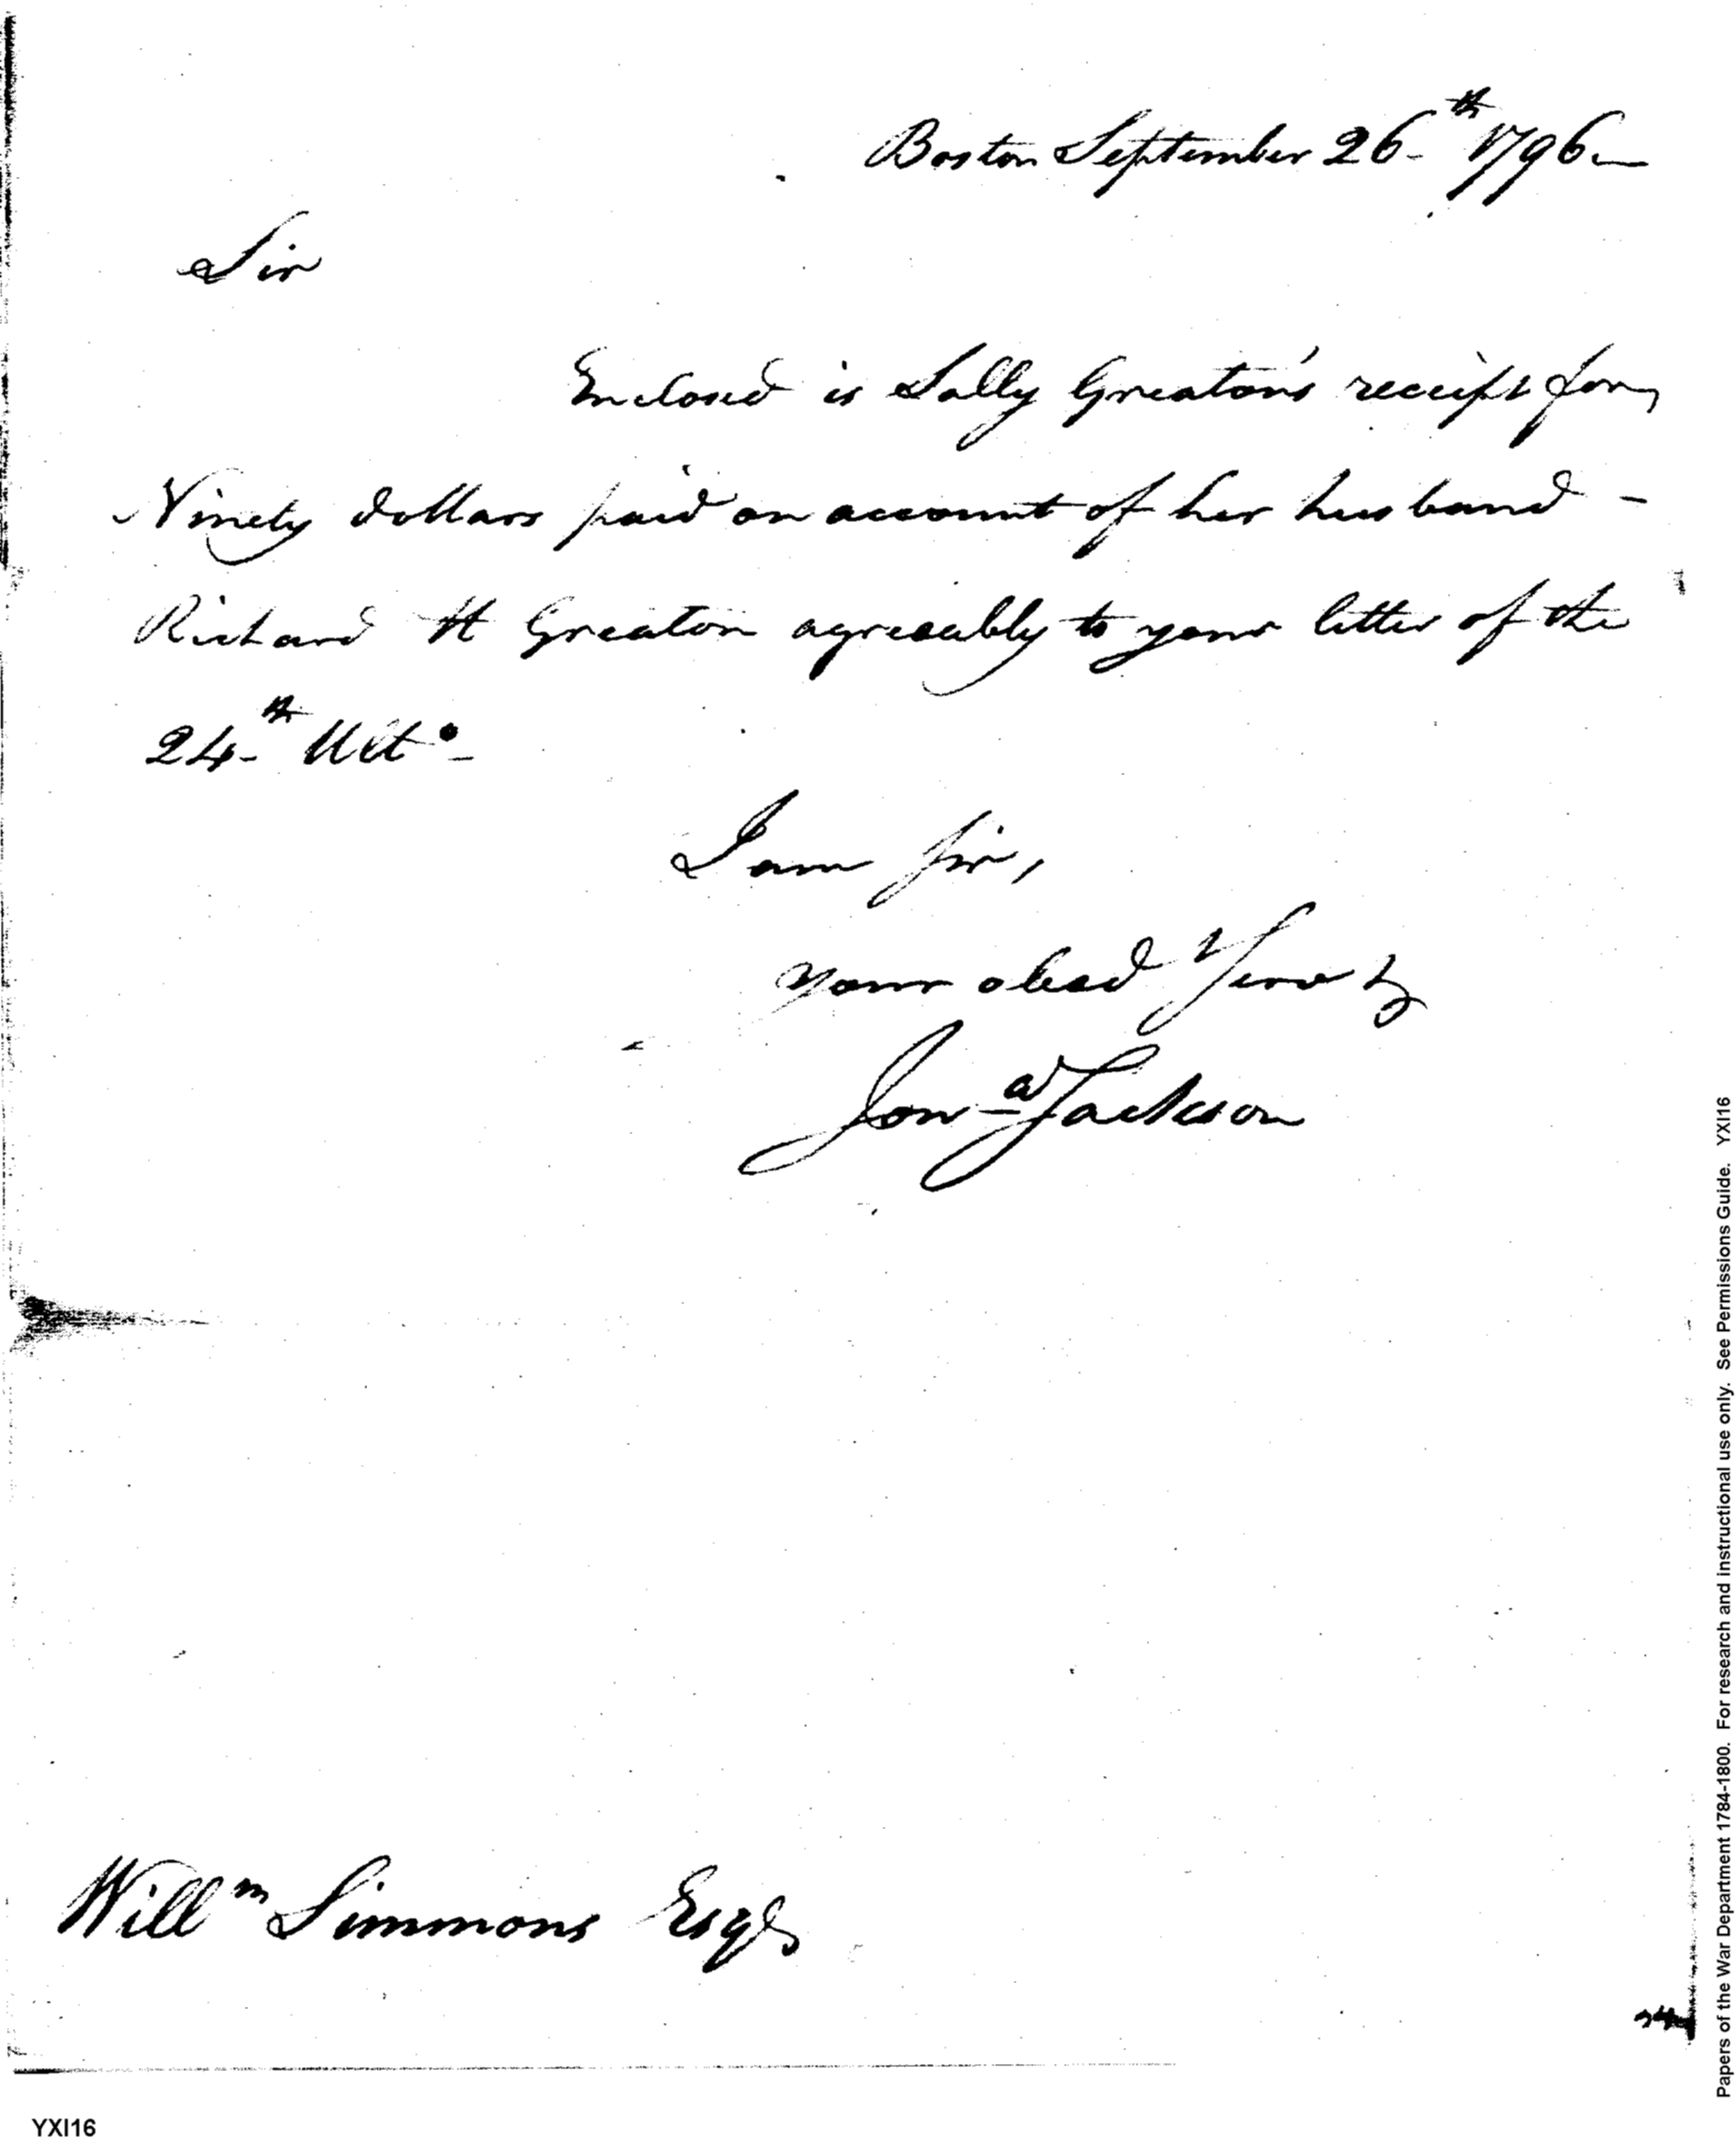 Boston September 26th 1796
Sir
Enclosed is Sally Greaton's receipt for
Ninety dollars paid on account of her husband -
Richard H Greaton agreeably to your letter of the
24th Ulto
I am Sir,
your obed Servt
Jona Jackson
Willm Simmons Esqr
Papers of the War Department 1784-1800. For research and instructional use only. See Permissions Guide. YXI16
YXI16